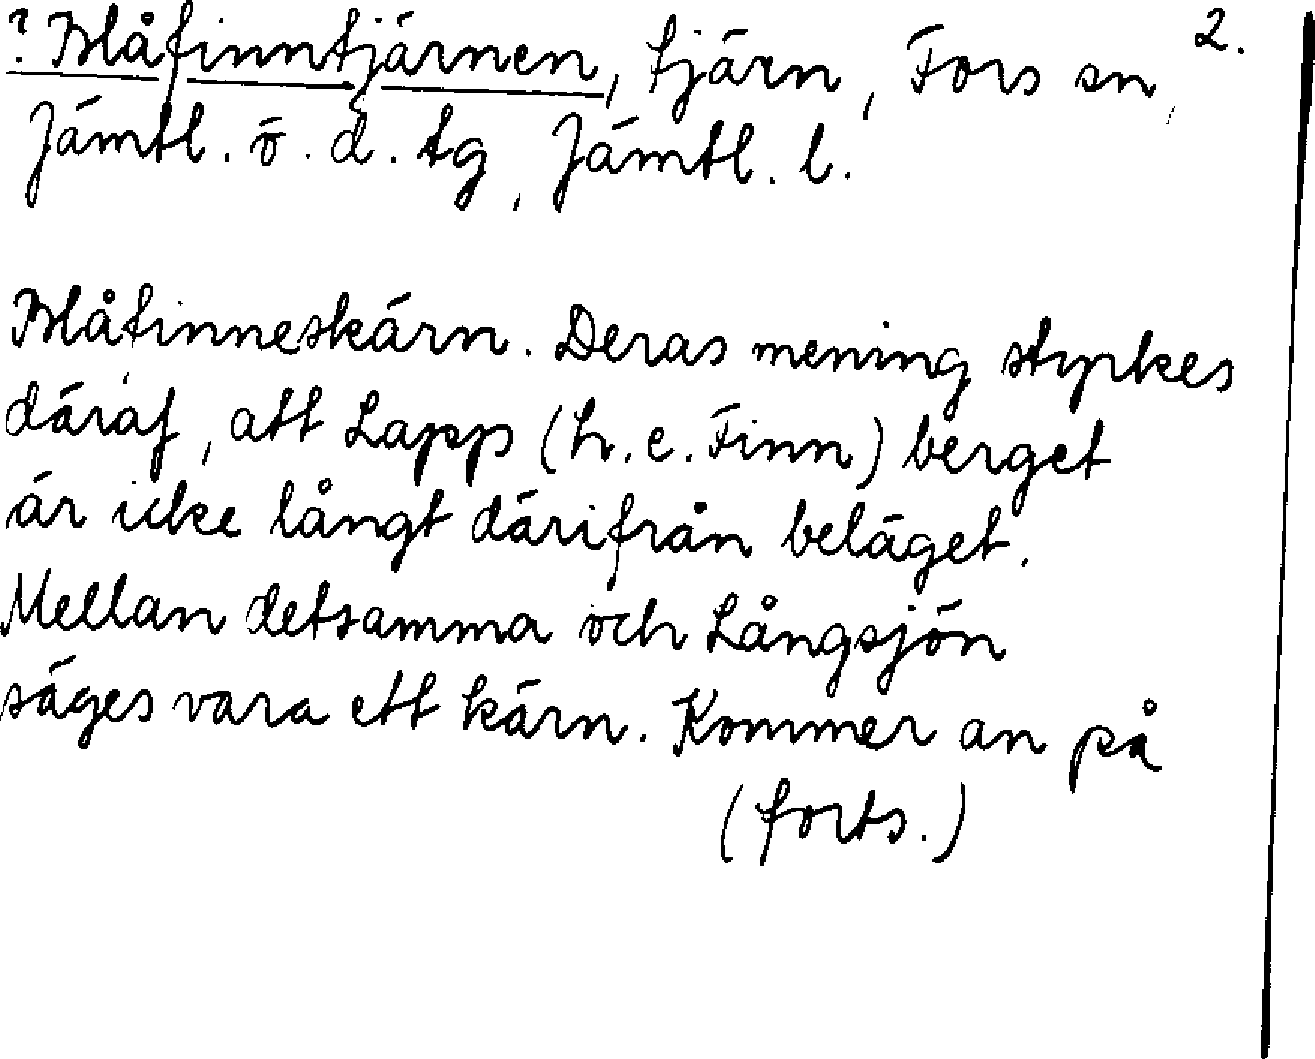 ? Blåfinntjärnen, tjärn, Fors sn, 2.
Jämtl. ö. d. tg, Jämtl. l.
Blåfinneskärn. Deras mening styrkes
däraf, att Lapp (h. e. Finn) berget
är icke långt därifrån beläget.
Mellan detsamma och Långsjön
säges vara ett kärn. Kommer an på
(forts.)